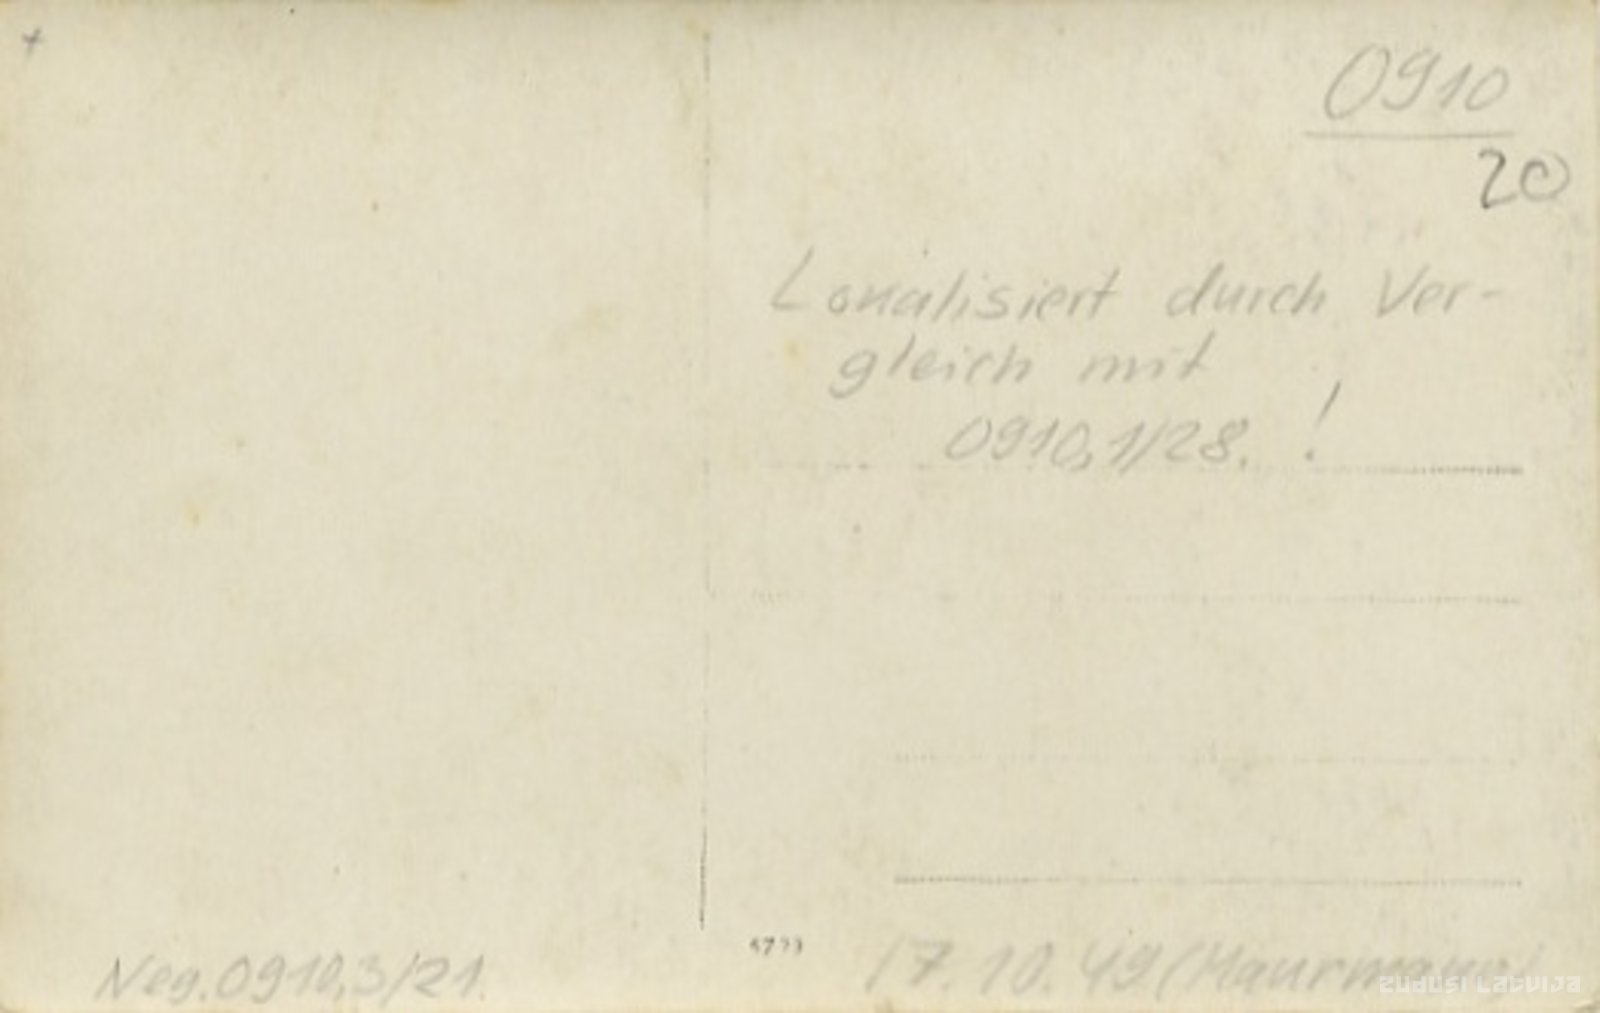 0910
20
Lokalisiert durch Ver-
gleich mit
0910,1/28. !
Neg. 0910,3/21.
17.10.49 (Maurmann)
zudusi Latvija